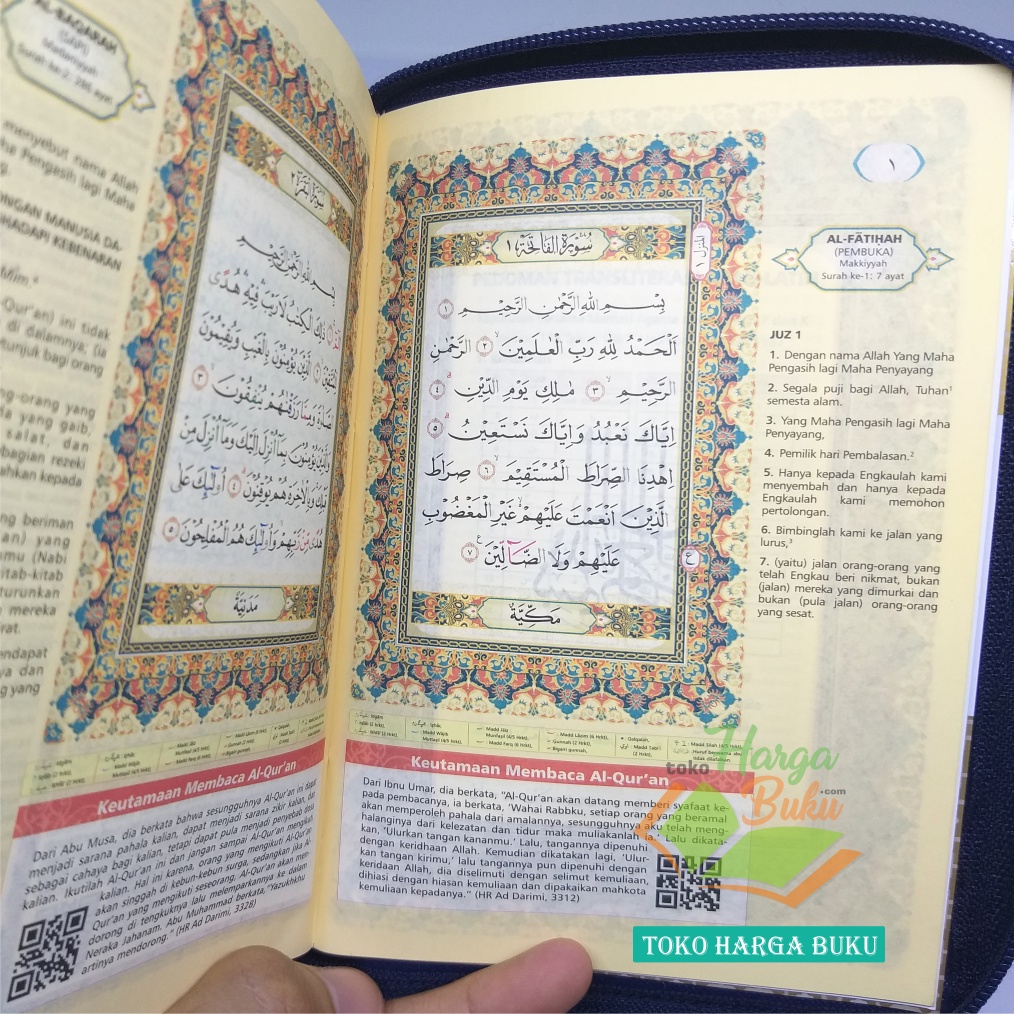 AL-BAQARAH
(SAPI)
Madaniyyah
Surah ke-2: 286 ayat
menyebut nama Allah
Pengasih lagi Maha
HADAPI KEBENARAN
Qur'an) ini tidak
di dalamnya; (ia
bagi orang
orang yang
yang gaib,
salat, dan
rezeki
kepada
beriman
yang
(Nabi
kitab-kitab
mereka
سُوْرَةُ الْبَقَرَةِ ٢
بِسْمِ اللّٰهِ الرَّحْمٰنِ الرَّحِيْمِ
ذٰلِكَ الْكِتٰبُ لَا رَيْبَ ۛ فِيْهِ ۛ هُدًى
الَّذِيْنَ يُؤْمِنُوْنَ بِالْغَيْبِ وَيُقِيْمُوْنَ
وَمِمَّا رَزَقْنٰهُمْ يُنْفِقُوْنَ ٣
يُؤْمِنُوْنَ بِمَآ اُنْزِلَ اِلَيْكَ وَمَآ اُنْزِلَ مِنْ
وَبِالْاٰخِرَةِ هُمْ يُوْقِنُوْنَ ٤ اُولٰۤىِٕكَ عَلٰى
هُدًى مِّنْ رَّبِّهِمْ وَاُولٰۤىِٕكَ هُمُ الْمُفْلِحُوْنَ ٥
مَدَنِيَّة
Keutamaan Membaca Al-Qur'an
Dari Abu Musa, dia berkata bahwa sesungguhnya Al-Qur'an ini dapat
menjadi sarana pahala kalian, dapat menjadi sarana zikir kalian, dan
sebagai cahaya bagi kalian, tetapi dapat pula menjadi penyebab dosa
kalian. Ikutilah Al-Qur'an ini dan jangan sampai Al-Qur'an mengikuti
kalian. Hal ini karena, orang yang mengikuti Al-Qur'an
akan singgah di kebun-kebun surga, sedangkan jika Al-
Qur'an yang mengikuti seseorang, Al-Qur'an akan men-
dorong di tengkuknya lalu melemparkannya ke dalam
Neraka Jahanam. Abu Muhammad berkata, "Yazukhkhu
artinya mendorong." (HR Ad Darimi, 3328)
١
سُوْرَةُ الْفَاتِحَةِ ١
المنزل ١
بِسْمِ اللّٰهِ الرَّحْمٰنِ الرَّحِيْمِ ١
اَلْحَمْدُ لِلّٰهِ رَبِّ الْعٰلَمِيْنَ ٢ الرَّحْمٰنِ
الرَّحِيْمِ ٣ مٰلِكِ يَوْمِ الدِّيْنِ ٤
اِيَّاكَ نَعْبُدُ وَاِيَّاكَ نَسْتَعِيْنُ ٥
اِهْدِنَا الصِّرَاطَ الْمُسْتَقِيْمَ ٦ صِرَاطَ
الَّذِيْنَ اَنْعَمْتَ عَلَيْهِمْ غَيْرِ الْمَغْضُوْبِ
عَلَيْهِمْ وَلَا الضَّاۤلِّيْنَ ٧
ع
مَكِّيَّة
AL-FĀTIḤAH
(PEMBUKA)
Makkiyyah
Surah ke-1: 7 ayat
JUZ 1
1. Dengan nama Allah Yang Maha
Pengasih lagi Maha Penyayang
2. Segala puji bagi Allah, Tuhan¹
semesta alam.
3. Yang Maha Pengasih lagi Maha
Penyayang,
4. Pemilik hari Pembalasan.²
5. Hanya kepada Engkaulah kami
menyembah dan hanya kepada
Engkaulah kami memohon
pertolongan.
6. Bimbinglah kami ke jalan yang
lurus,³
7. (yaitu) jalan orang-orang yang
telah Engkau beri nikmat, bukan
(jalan) mereka yang dimurkai dan
bukan (pula jalan) orang-orang
yang sesat.
Keutamaan Membaca Al-Qur'an
Dari Ibnu Umar, dia berkata, "Al-Qur'an akan datang memberi syafaat ke-
pada pembacanya, ia berkata, 'Wahai Rabbku, setiap orang yang beramal
akan memperoleh pahala dari amalannya, sesungguhnya aku telah meng-
halanginya dari kelezatan dan tidur maka muliakanlah ia.' Lalu dikata-
kan, 'Ulurkan tangan kananmu.' Lalu, tangannya dipenuhi
dengan keridhaan Allah. Kemudian dikatakan lagi, 'Ulur-
kan tangan kirimu,' lalu tangannya pun dipenuhi dengan
keridaan Allah, dia diselimuti dengan selimut kemuliaan,
dihiasi dengan hiasan kemuliaan dan dipakaikan mahkota
kemuliaan kepadanya." (HR Ad Darimi, 3312)
toko Harga
Buku.com
TOKO HARGA BUKU